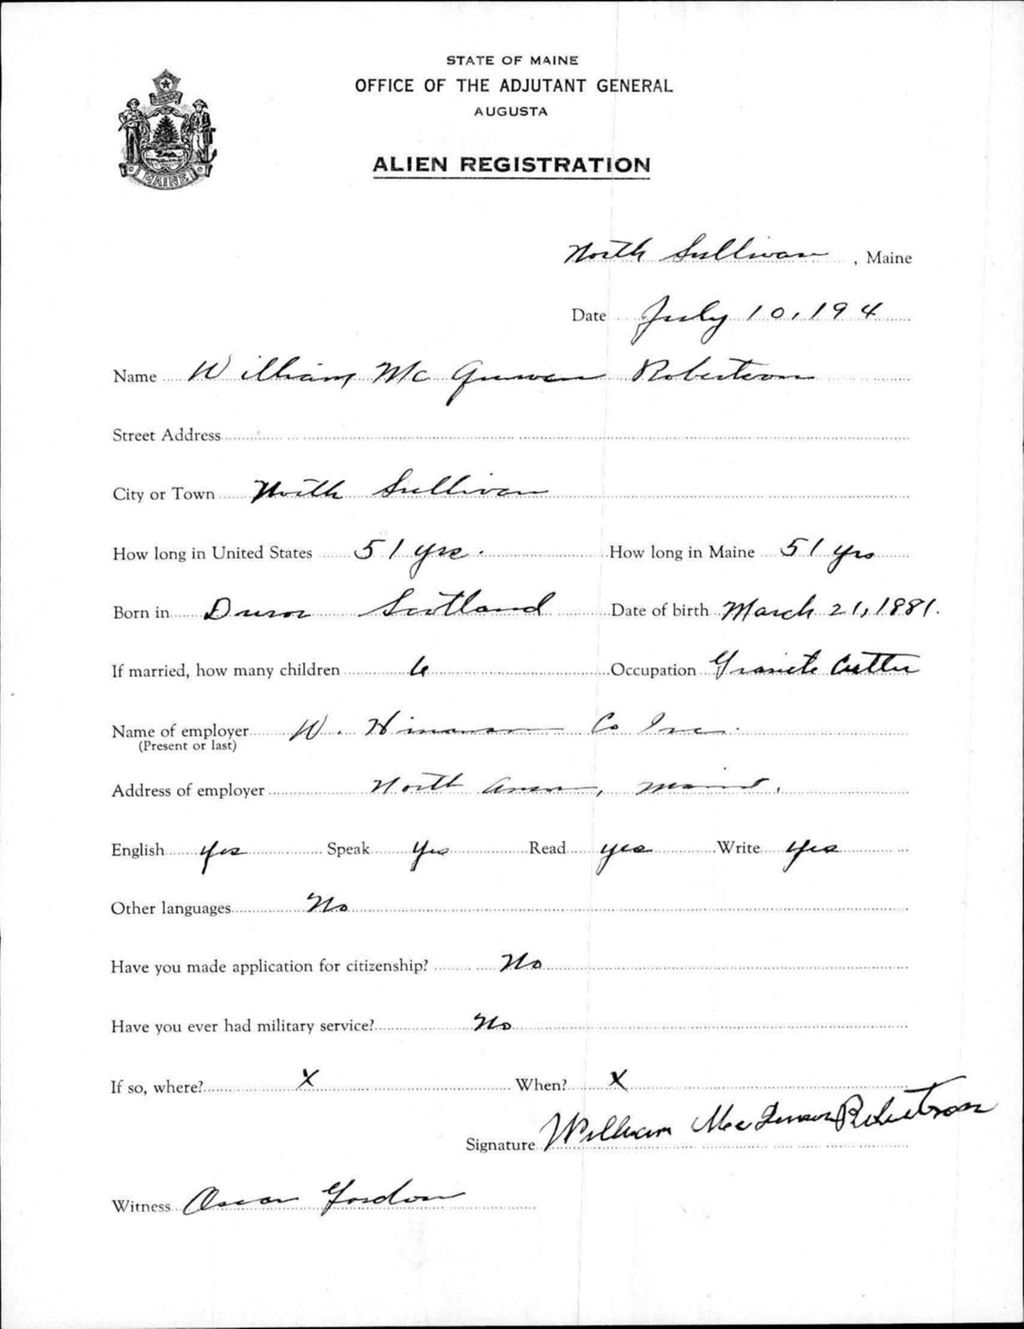 STATE OF MAINE
OFFICE OF THE ADJUTANT GENERAL
AUGUSTA
ALIEN REGISTRATION
MAINE
North Sullivan, Maine
Date July 10, 194
Name William Mc Robertson
Street Address
City or Town North Sullivan
How long in United States 51 yrs. How long in Maine 51 yrs
Born in Scotland Date of birth March 21, 1881.
If married, how many children 6 Occupation Granite Cutter
Name of employer W. Co Inc.
(Present or last)
Address of employer North Anson, Maine.
English yes Speak yes Read yes Write yes
Other languages No
Have you made application for citizenship? No
Have you ever had military service? No
If so, where? X When? X
Signature William Robertson
Witness Oscar Gordon